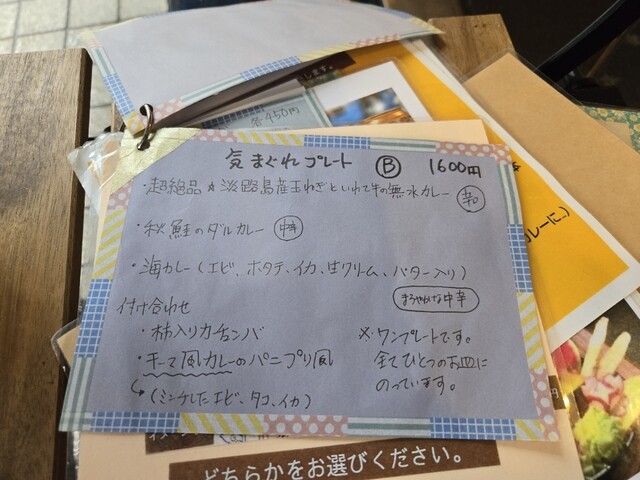 します。
各450円
気まぐれプレート Ⓑ 1600円
・超絶品☆淡路島産玉ねぎといわて牛の無水カレー 辛口
・秋鮭のダルカレー 中辛
・海カレー(エビ、ホタテ、イカ、生クリーム、バター入り)
まろやかな中辛
付け合わせ
・柿入りカチュンバ
・キーマ風カレーのパニプリ風
↳(ミンチしたエビ、タコ、イカ)
※ワンプレートです。
全てひとつのお皿に
のっています。
カレーに、)
円
どちらかをお選びください。